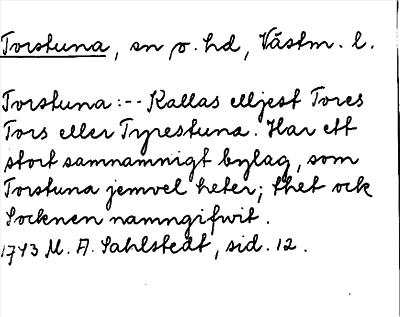 Torstuna, sn o. hd, Västm. l.
Torstuna :-- Kallas elljest Tores
Tors eller Tyrestuna. Har ett
stort samnamnigt bylag, som
Torstuna jemvel heter; thet ock
Socknen namngifwit.
1743 M. A. Sahlstedt, sid. 12.